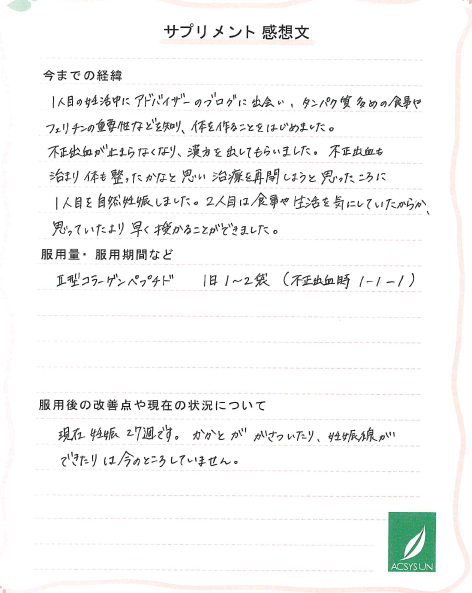 サプリメント 感想文
今までの経緯
1人目の妊活中にアドバイザーのブログに出会い、タンパク質多めの食事や
フェリチンの重要性などを知り、体を作ることをはじめました。
不正出血が止まらなくなり、漢方を出してもらいました。不正出血も
治まり体も整ったかなと思い治療を再開しようと思ったころに
1人目を自然妊娠しました。2人目は食事や生活を気にしていたからか、
思っていたより早く授かることができました。
服用量・服用期間など
Ⅱ型コラーゲンペプチド 1日1〜2袋 (不正出血時 1-1-1)
服用後の改善点や現在の状況について
現在妊娠27週です。かかとががさついたり、妊娠線が
できたりは今のところしていません。
ACSYSUN